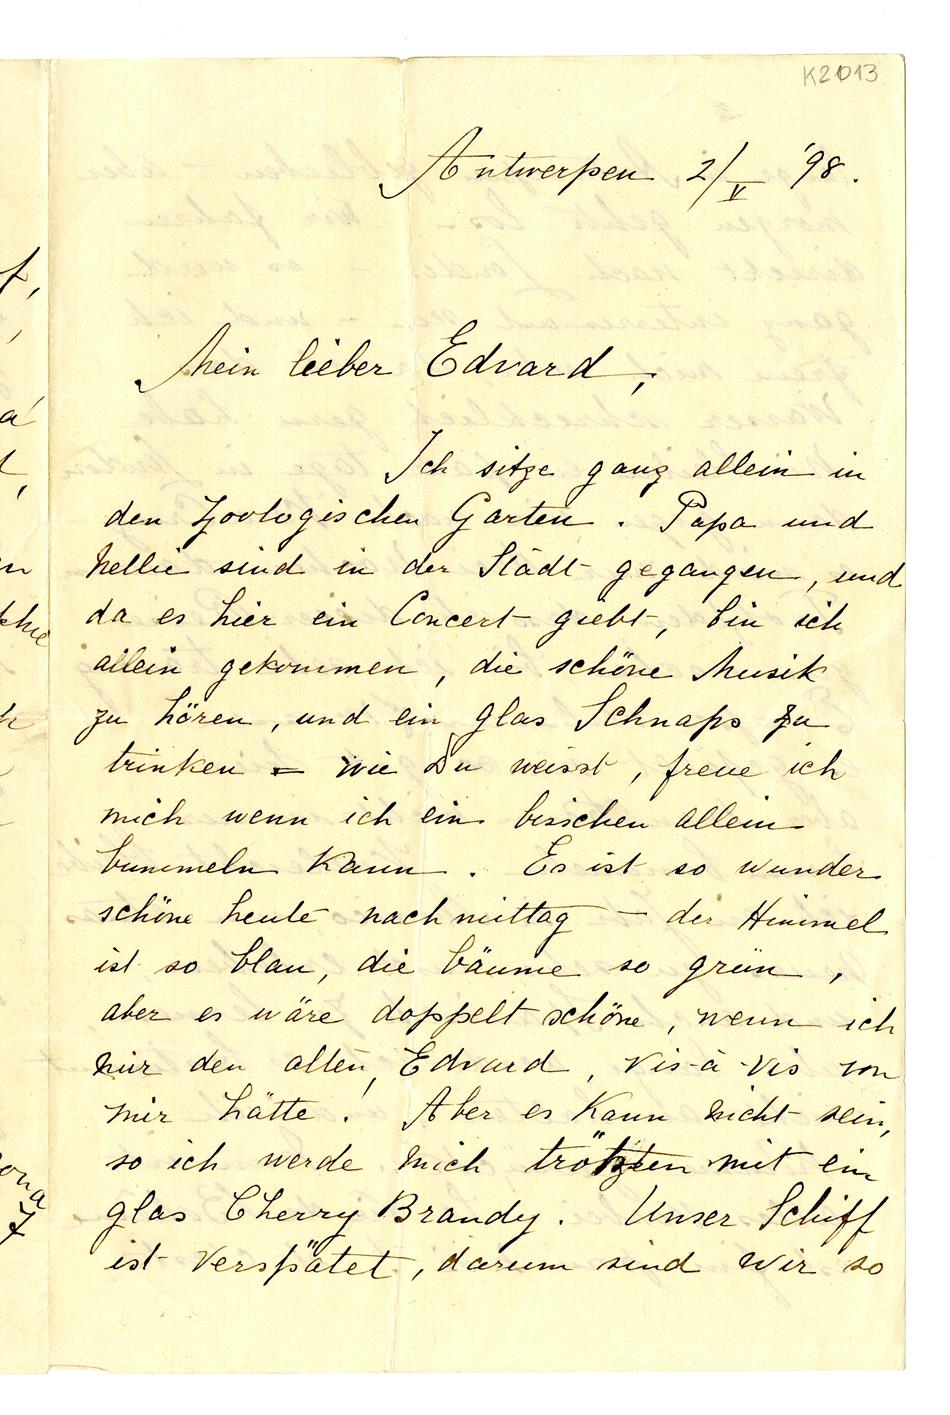 K2013
Antwerpen 2/V '98.
Mein lieber Edvard,
Ich sitze ganz allein in
den Zoologischen Garten. Papa und
Nellie sind in der Stadt gegangen, und
da es hier ein Concert giebt, bin ich
allein gekommen, die schöne Musik
zu hören, und ein glas Schnaps zu
trinken – wie Du weisst, freue ich
mich wenn ich ein bischen allein
bummeln kann. Es ist so wunder
schöne heute nachmittag – der Himmel
ist so blau, die bäume so grün,
aber es wäre doppelt schöne, wenn ich
nur den alten, Edvard, vis-à-vis von
mir hätte! Aber es kann nicht sein,
so ich werde mich trösten mit ein
glas Cherry Brandy. Unser Schiff
ist verspätet, darum sind wir so